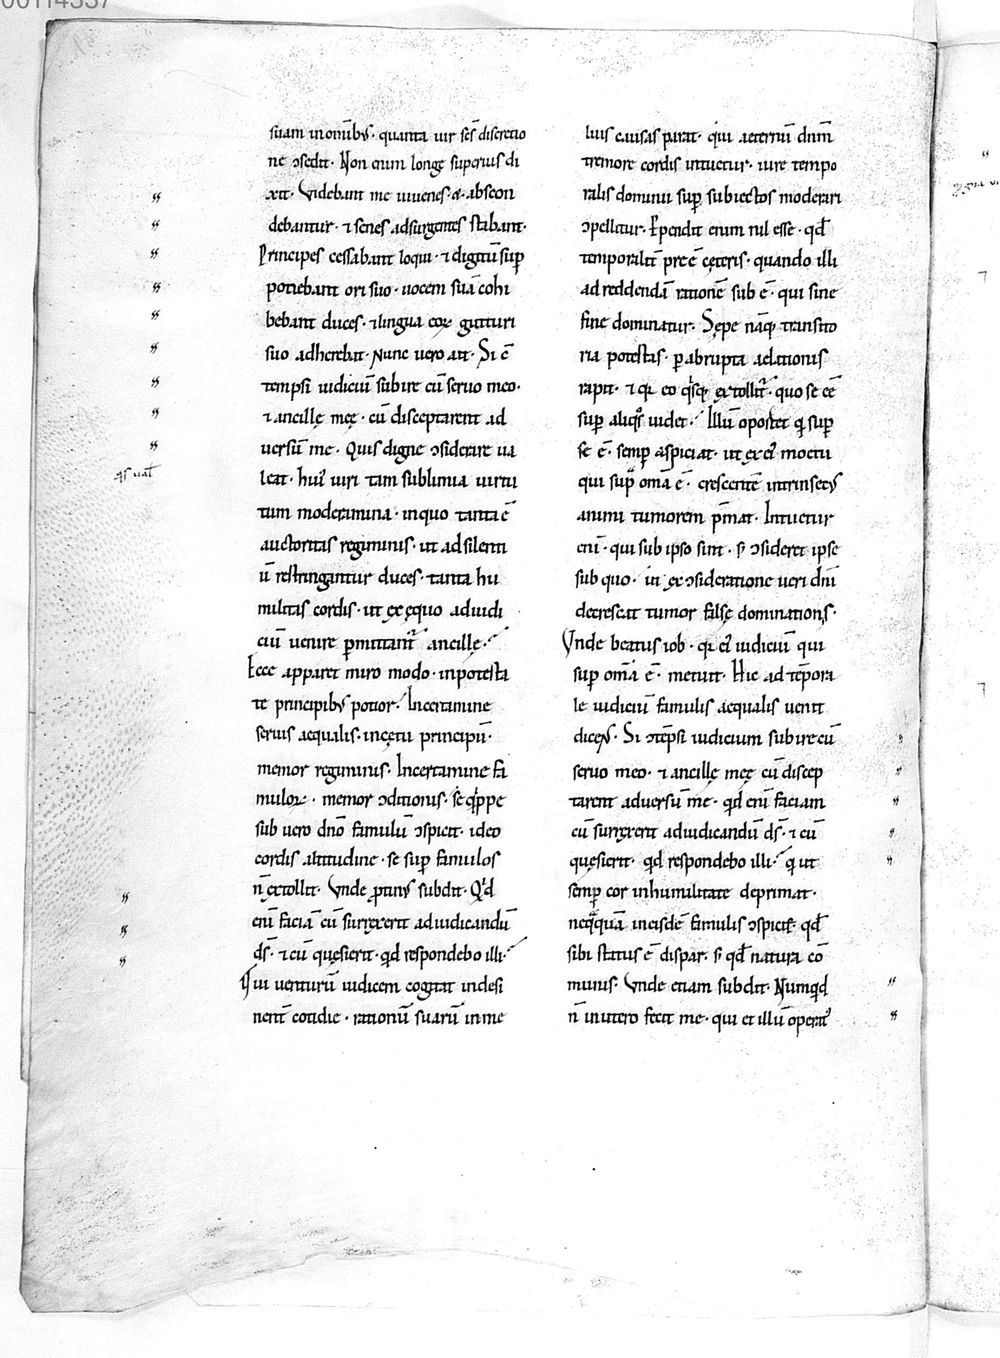 suam in omĩbꝰ· quanta uir scs̄ discretio
ne ↄsedit· Non enim longe superius di
xit· Videbant me iuuenes· & abscon
debantur· ⁊ senes adsurgentes stabant·
Principes cessabant loqui· ⁊ digitū suꝑ
ponebant ori suo· uocem suā cohi
bebant duces· ⁊ lingua eoꝝ gutturi
suo adherebat· Nunc uero ait· Si ↄ̄
tempsi iudiciū subire cū seruo meo·
⁊ ancillę meę· cū disceptarent ad
uersū me· Quis digne ↄsiderare ua
qͥs ual̄
leat· huiꝰ uiri tam sublimia uirtu
tum moderamina· in quo tanta ē
auctoritas regiminis· ut ad silenti
ū restringantur duces· tanta hu
militas cordis· ut ex equo ad iudi
ciū uenire ꝑmittant᷑ ancillę·
Ecce apparet miro modo· in potesta
te principibꝰ potior· In certamine
seruis aequalis· in cętu principū·
memor regiminis· In certamine fa
muloꝝ· memor ↄditionis· Se qͥppe
sub uero dn̄o famulū ↄspicit· ideo
cordis altitudine· se suꝑ famulos
n̄ extollit· Vnde ꝓtinꝰ subdit· Qͥd
enī faciā cū surrexerit ad iudicandū
ds̄· ⁊ cū quęsierit· qͥd respondebo illi·
Qui uenturū iudicem cogitat indesi
nent̄ cotidie· rationū suarū in me
lius causas parat· qui aeternū dn̄m
tremore cordis intuetur· iure tempo
ralis dominii suꝑ subiectos moderari
ↄpellitur· Perpendit enim nil esse· qd̄
temporalit̄ pre ē cęteris· quando illi
ad reddendā rationē sub ē· qui sine
fine dominatur· Sępe nāq; transito
ria potestas· ꝑ abrupta aelationis
rapit· ⁊ qꝛ eo qͥsq; extollit᷑· quo se eē
suꝑ aliqͦs uidet· Illū oportet qͥ suꝑ
se ē· semꝑ aspiciat· ut ex eiꝰ motu
qui supͣ om̄a ē· crescentē intrinsecꝰ
animi tumorem p̄mat· Intuetur
enī· qui sub ipso sint· sꝫ ↄsideret ipse
sub quo· ut ex ↄsideratione ueri dn̄i
decrescat tumor falsę dominationis·
Vnde beatus iob· qꝛ eiꝰ iudiciū qui
suꝑ om̄a ē· metuit· Hic ad tēpora
le iudiciū famulis aequalis uenit
dicens· Si ↄtēpsi iudicium subire cū
seruo meo· ⁊ ancillę meę cū discep
tarent aduersū me· qͥd enī faciam
cū surrexerit ad iudicandū ds̄· ⁊ cū
quęsierit· qͥd respondebo illi· qͥ ut
semꝑ cor in humilitate deprimat·
neqͣquā in eisdē famulis ↄspicit· qd̄
sibi status ē dispar· sꝫ qd̄ natura cō
munis· Vnde etiam subdit· Numqͥd
n̄ in utero fecit me· qui et illū operat᷑